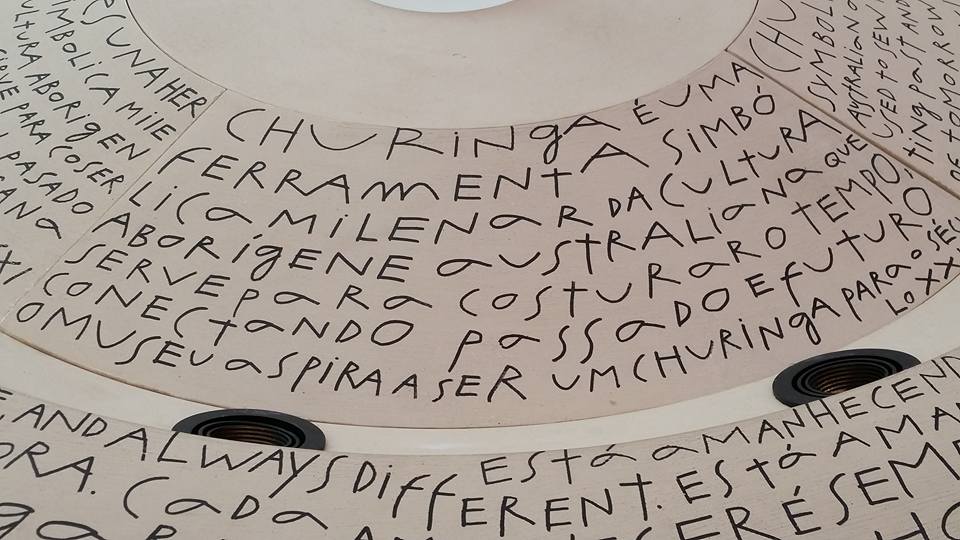 ES UNA HER
IMBÓLICA MILE
LTURA ABORIGEN
PARA COSER
PASADO
CHURINGA É UMA
FERRAMENTA SIMBÓ
LICA MILENAR DA CULTURA
ABORÍGENE AUSTRALIANA QUE
SERVE PARA COSTURAR O TEMPO,
CONECTANDO PASSADO E FUTURO
O MUSEU ASPIRA A SER UM CHURINGA PARA O SÉCU
LO XXI
CHU
SYMBOLI
AUSTRALIAN
USED TO SEW
TING PAST AND
OF TOMORROW
ESTÁ AMANHECEND
AND ALWAYS DIFFERENT. ESTÁ AMA
ORA. CADA SER É SEMP